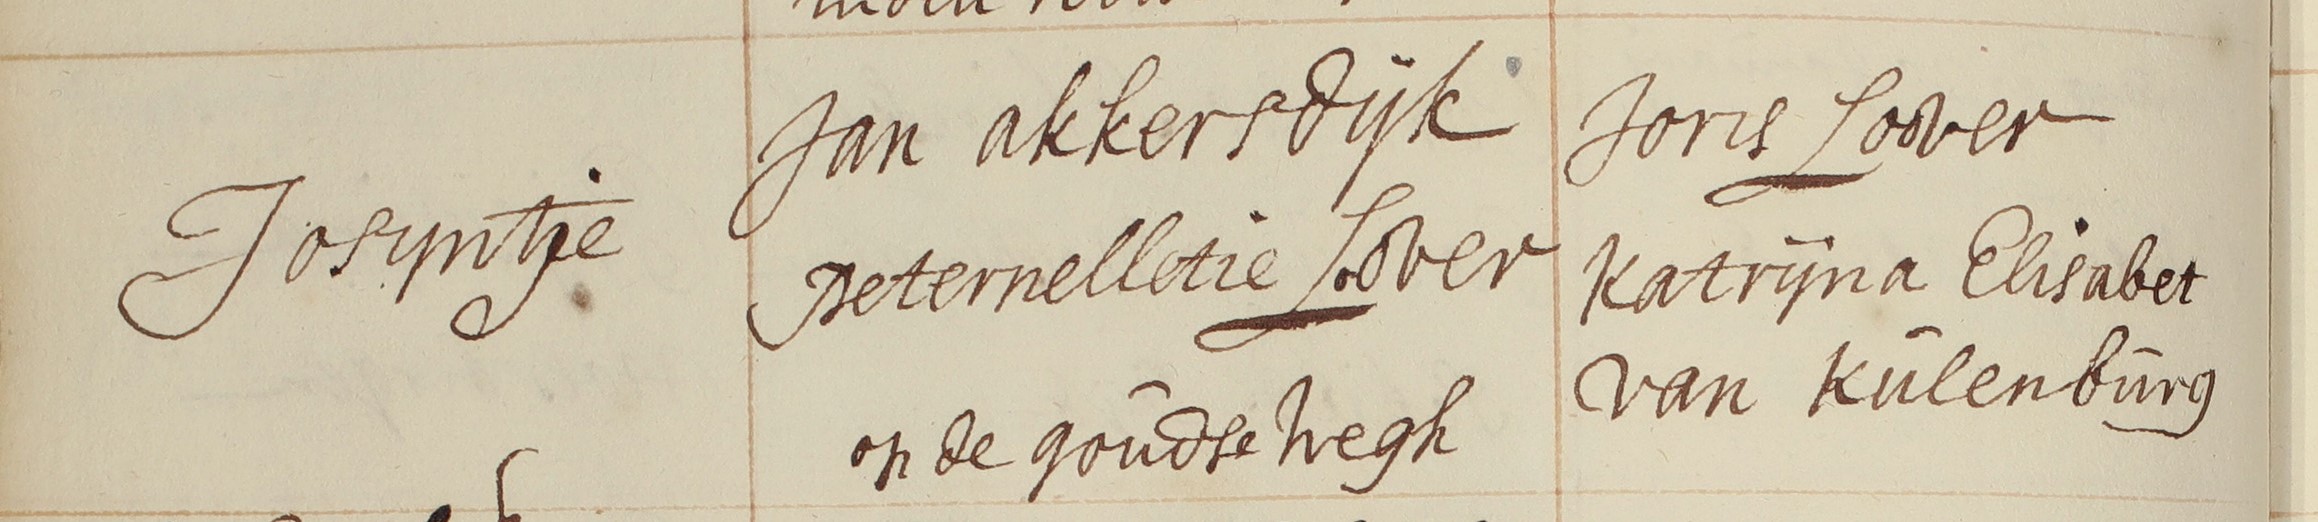 Josyntje
Jan akkersdijk
peternelletie Loover
op de goudse wegh
Joris Loover
Katrijna Elisabet
van Kulenburg